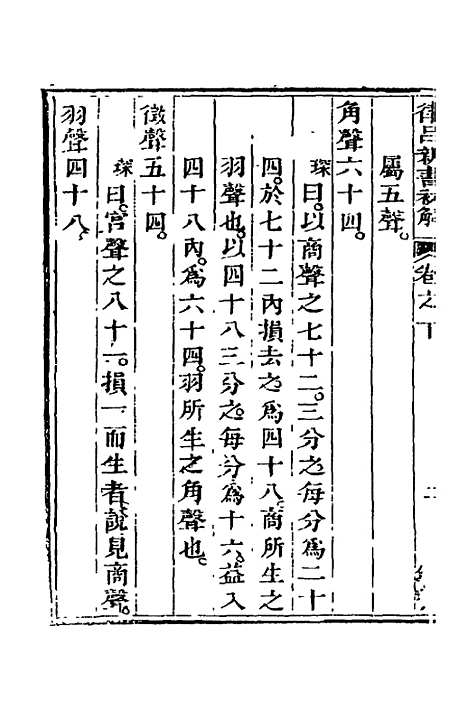 律呂新書初解 卷之下 二
屬五聲。
角聲六十四。
琛曰。以商聲之七十二。三分之。每分爲二十
四。於七十二內損去之。爲四十八。商所生之
羽聲也。以四十八三分之。每分爲十六。益入
四十八內。爲六十四。羽所生之角聲也。
徵聲五十四。
琛曰。宮聲之八十一。損一而生者。說見商聲。
羽聲四十八。